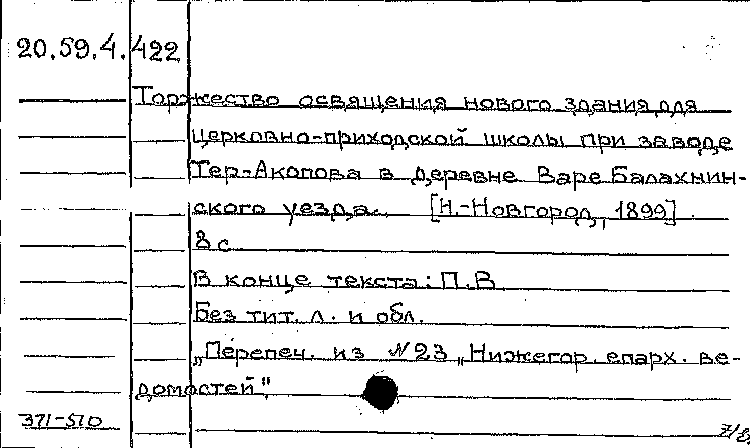 20.59.4.422
Торжество освящения нового здания для
церковно-приходской школы при заводе
Тер-Акопова в деревне Варе Балахнин-
ского уезда. [Н.-Новгород, 1899].
8 с.
В конце текста: П.В.
Без тит. л. и обл.
„Перепеч. из №23 „Нижегор. епарх. ве-
домостей"
371-510